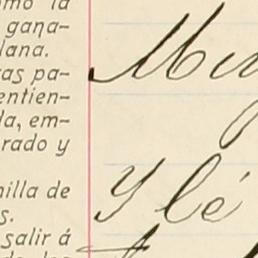 omo la
gana-
lana.
as pa-
entien-
la, em-
rado y
nilla de
s.
salir á
Y lé